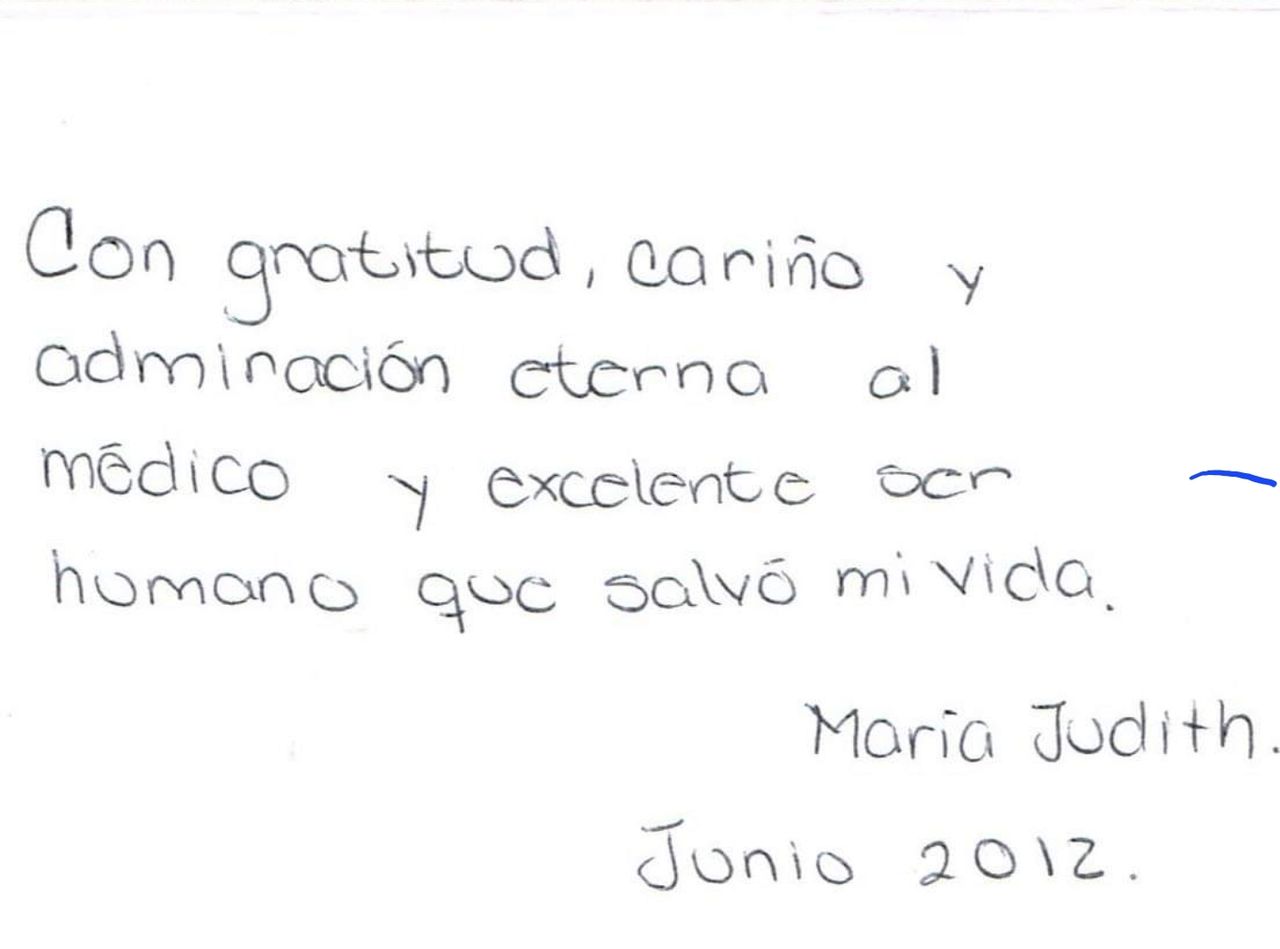 Con gratitud, cariño y
admiración eterna al
médico y excelente ser
humano que salvó mi vida.
María Judith.
Junio 2012.